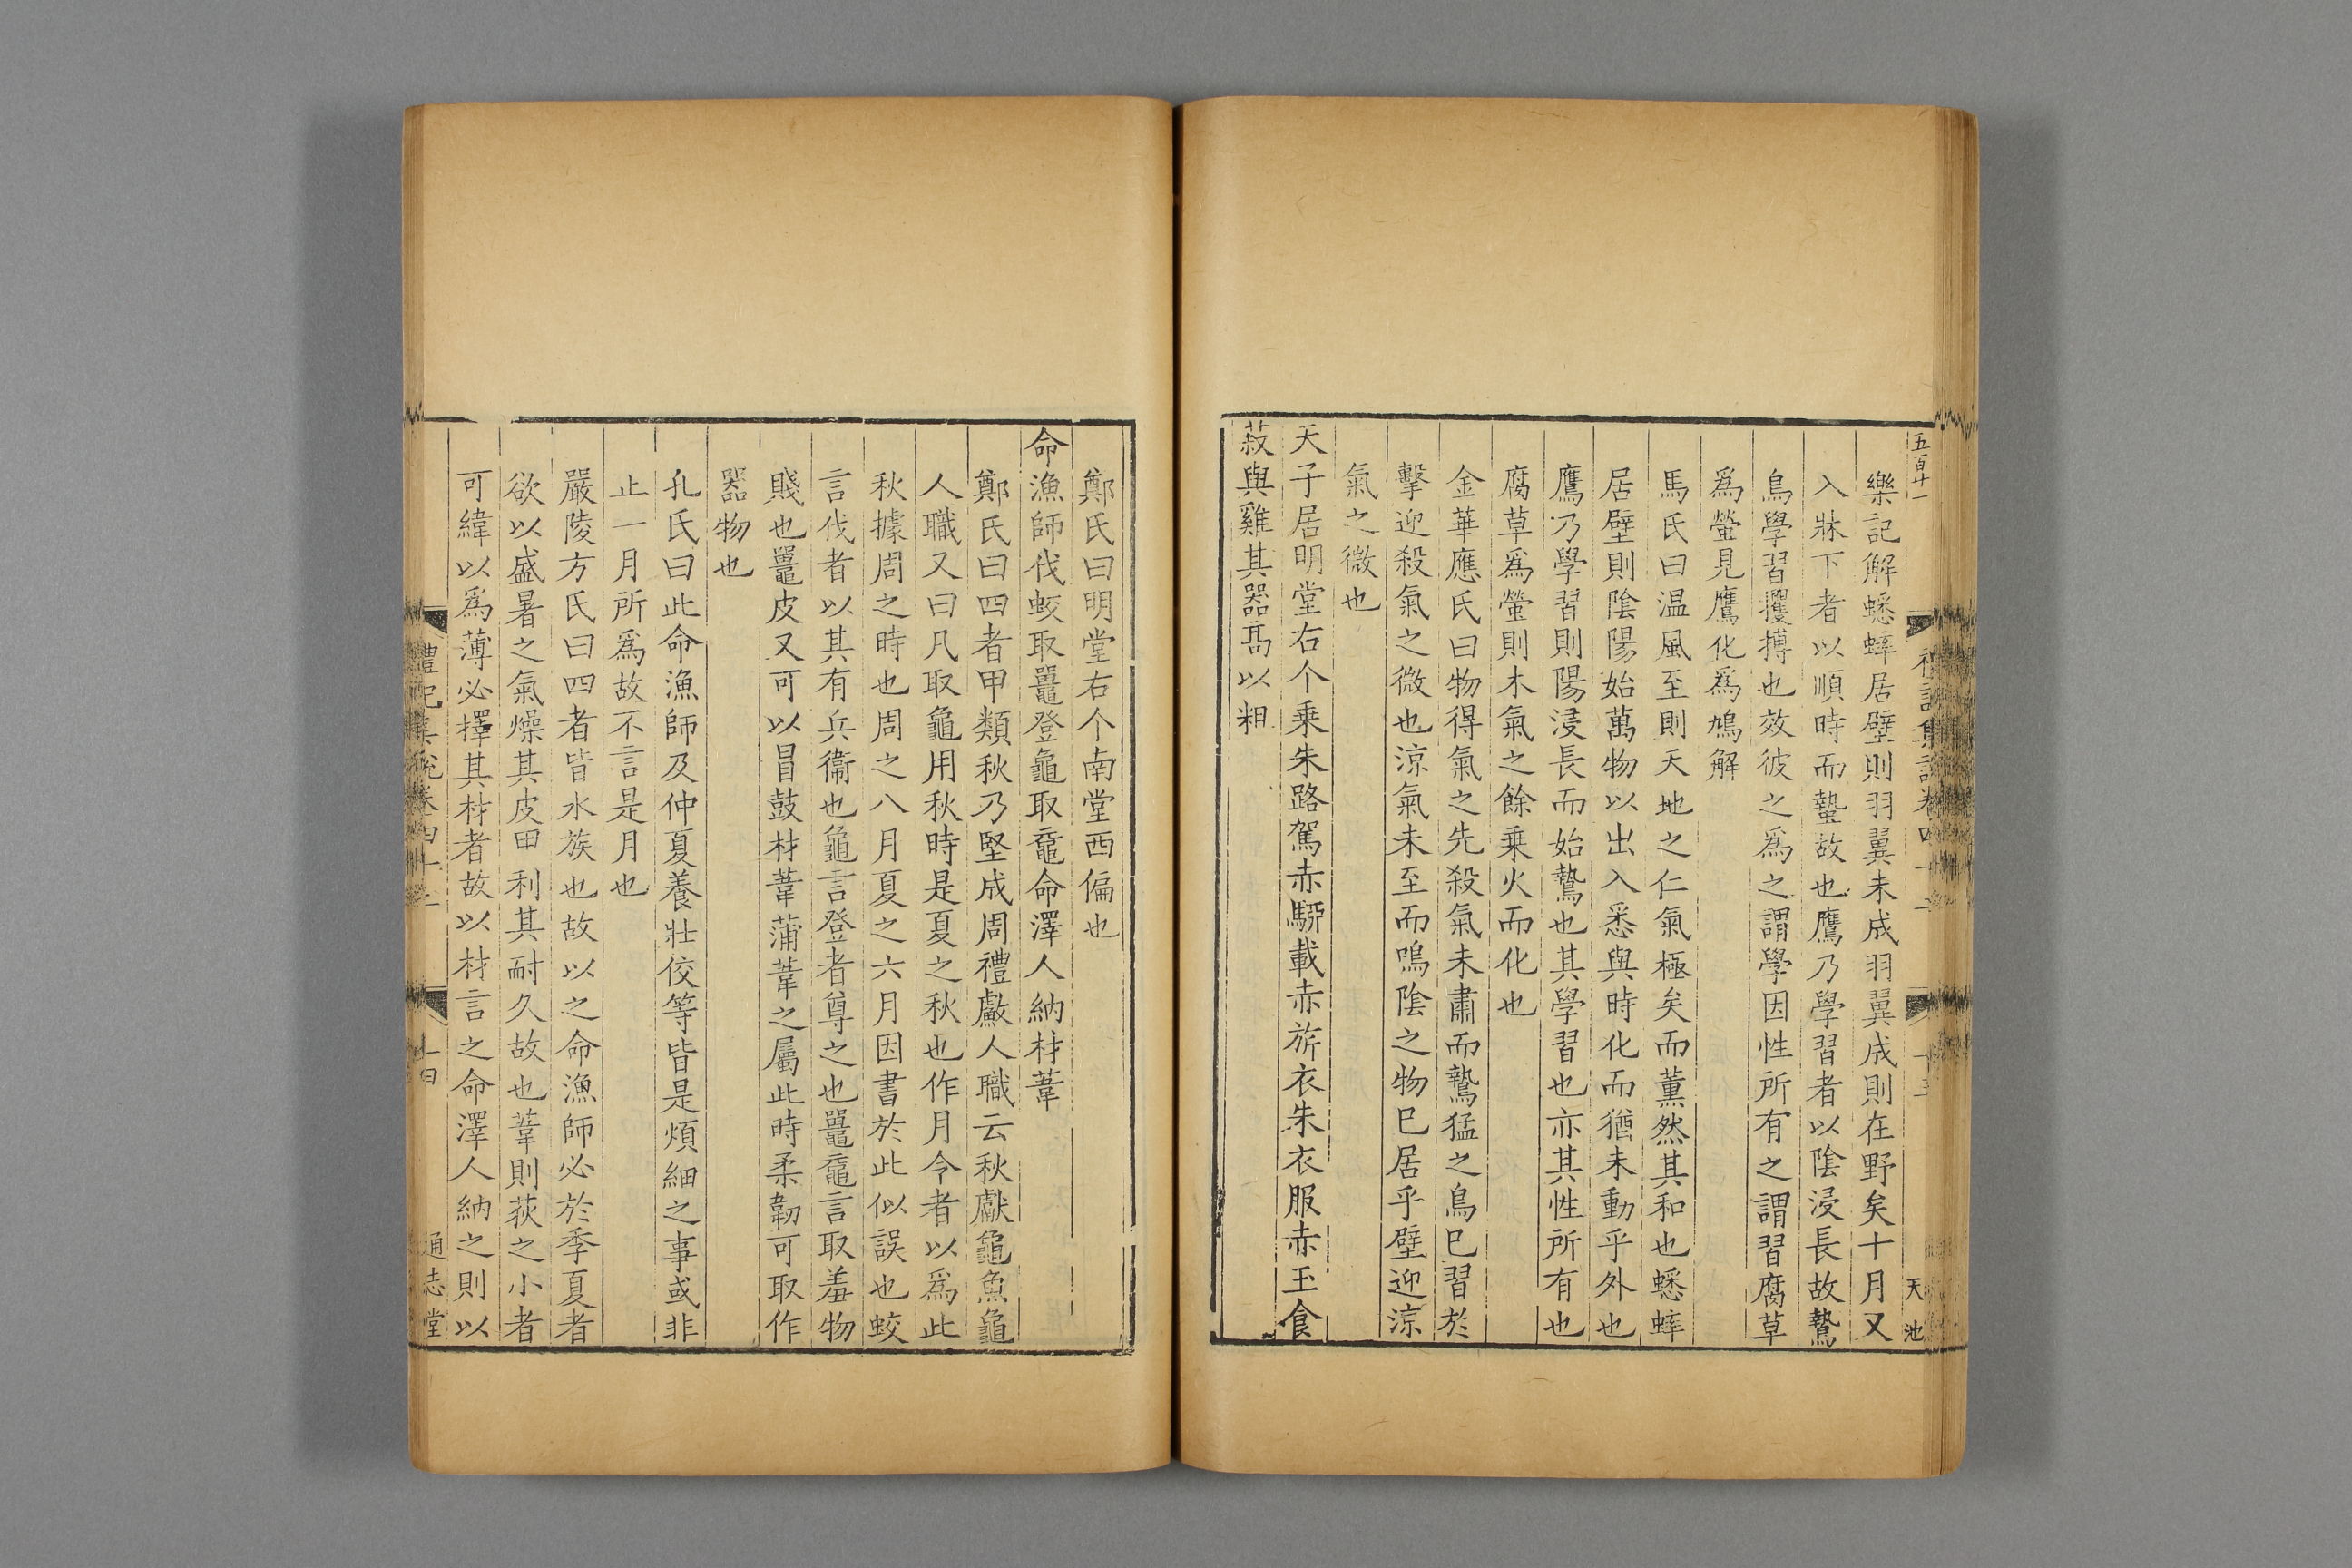 五百廿一
樂記解蟋蟀居壁則羽翼未成羽翼成則在野矣十月又
入牀下者以順時而蟄故也鷹乃學習者以陰浸長故鷙
鳥學習攫搏也效彼之為之謂學因性所有之謂習腐草
為螢見鷹化為鳩解
馬氏曰温風至則天地之仁氣極矣而薰然其和也蟋蟀
居壁則陰陽始萬物以出入悉與時化而猶未動乎外也
鷹乃學習則陽浸長而始鷙也其學習也亦其性所有也
腐草爲螢則木氣之餘乗火而化也
金華應氏曰物得氣之先殺氣未肅而鷙猛之鳥已習於
擊迎殺氣之微也涼氣未至而鳴陰之物已居乎壁迎涼
氣之微也
天子居明堂右个乗朱路駕赤騵載赤旂衣朱衣服赤玉食
菽與雞其器髙以粗
天池
鄭氏曰明堂右个南堂西偏也
命漁師伐蛟取鼉登龜取黿命澤人納材葦
鄭氏曰四者甲類秋乃堅成周禮䱷人職云秋獻龜魚龜
人職又曰凡取龜用秋時是夏之秋也作月令者以爲此
秋據周之時也周之八月夏之六月因書於此似誤也蛟
言伐者以其有兵衞也龜言登者尊之也鼉黿言取羞物
賤也鼉皮又可以冒鼓材葦蒲葦之屬此時柔韌可取作
器物也
孔氏曰此命漁師及仲夏養壯佼等皆是煩細之事或非
止一月所爲故不言是月也
嚴陵方氏曰四者皆水族也故以之命漁師必於季夏者
欲以盛暑之氣燥其皮甲利其耐久故也葦則荻之小者
可緯以爲薄必擇其材者故以材言之命澤人納之則以
禮記集說卷四十二
十四
通志堂